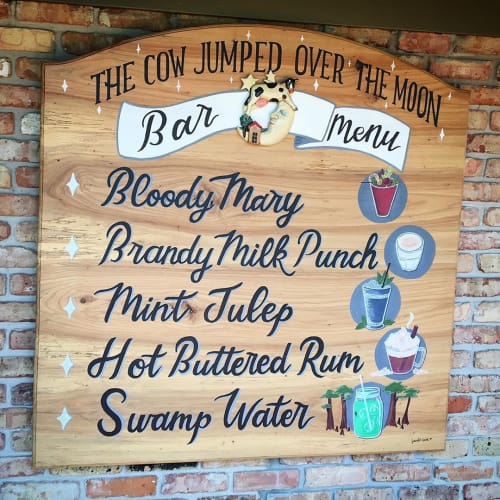 THE COW JUMPED OVER THE MOON
Bar Menu
Bloody Mary
Brandy Milk Punch
Mint Julep
Hot Buttered Rum
Swamp Water